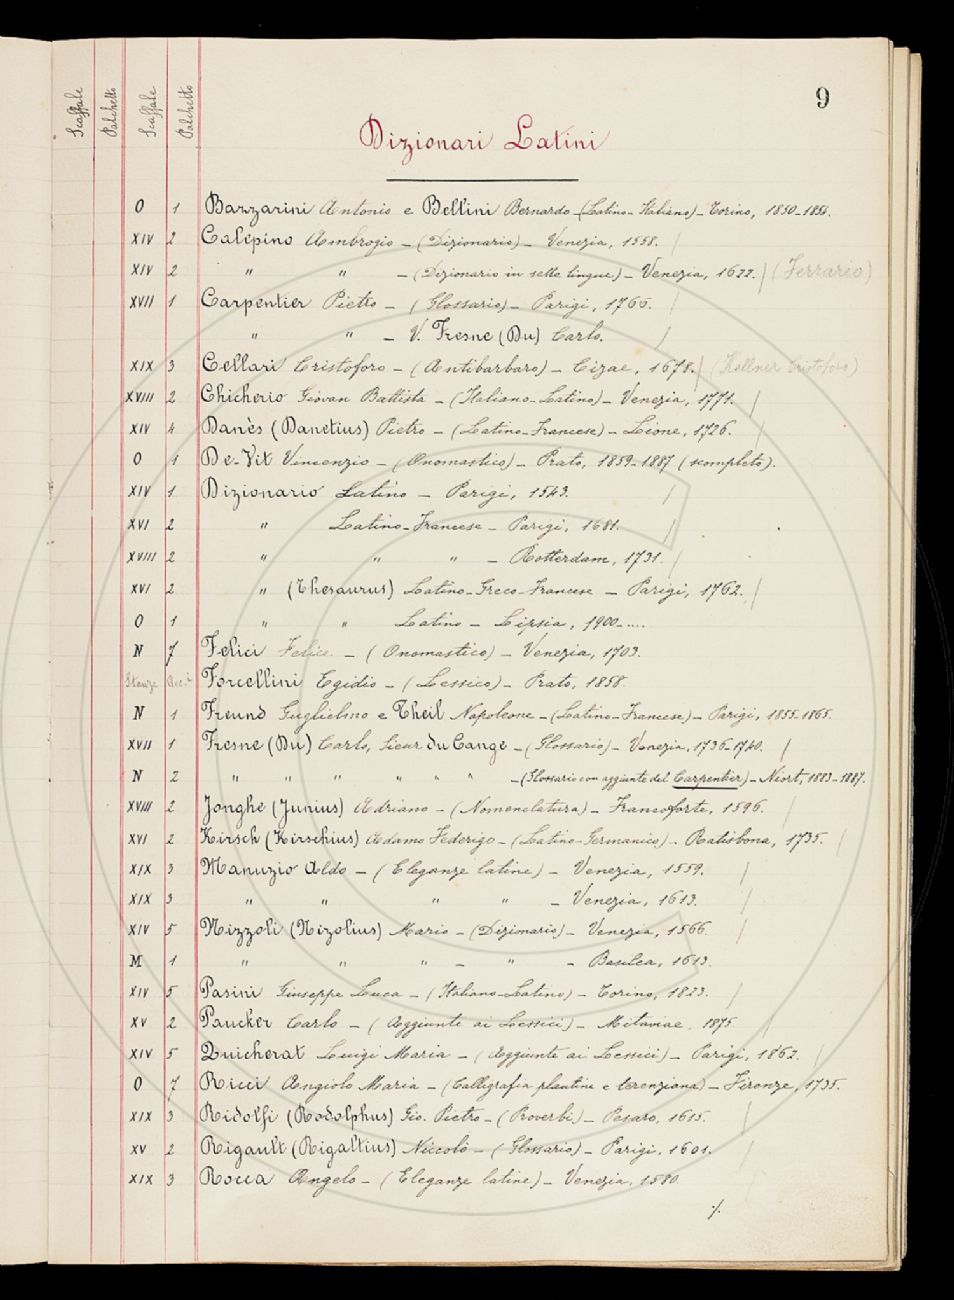 9
Scaffale Palchetto Scaffale Palchetto
Dizionari Latini
O 1 Bazzarini Antonio e Bellini Bernardo - (Latino-Italiano) - Torino, 1850-1854.
XIV 2 Calepino Ambrogio - (Dizionario) - Venezia, 1558. /
XIV 2 " " - (Dizionario in sette lingue) - Venezia, 1622. / (Ferrario)
XVII 1 Carpentier Pietro - (Glossario) - Parigi, 1766. /
" " - V. Fresne (Du) Carlo. /
XIX 3 Cellari Cristoforo - (Antibarbaro) - Cizae, 1678. / (Kellner Cristoforo)
XVIII 2 Chicherio Giovan Battista - (Italiano-Latino) - Venezia, 1771. /
XIV 4 Danès (Danetius) Pietro - (Latino-Francese) - Lione, 1726. /
O 1 De-Vit Vincenzio - (Onomastico) - Prato, 1859-1887 (scompleto).
XIV 1 Dizionario Latino - Parigi, 1543. /
XVI 2 " Latino-Francese - Parigi, 1681. /
XVIII 2 " " " - Rotterdam, 1731. /
XVI 2 " (Thesaurus) Latino-Greco-Francese - Parigi, 1762. /
O 1 " " Latino - Lipsia, 1900-....
N 7 Felici Felice. - (Onomastico) - Venezia, 1703.
Stanze Forcellini Egidio - (Lessico) - Prato, 1858.
N 1 Freund Guglielmo e Theil Napoleone - (Latino-Francese) - Parigi, 1855-1865.
XVII 1 Fresne (Du) Carlo, Sieur Du Cange - (Glossario) - Venezia, 1736-1740. /
N 2 " " " " " " - (Glossario con aggiunte del Carpentier) - Niort, 1883-1887.
XVIII 2 Jonghe (Junius) Adriano - (Nomenclatura) - Francoforte, 1596. /
XVI 2 Kirsch (Kirschius) Adamo Federigo - (Latino-Germanico) - Ratisbona, 1735. /
XIX 3 Manuzio Aldo - (Eleganze latine) - Venezia, 1559. /
XIX 3 " " " " - Venezia, 1613. /
XIV 5 Nizzoli (Nizolius) Mario - (Dizionario) - Venezia, 1566. /
M 1 " " " - " - Basilea, 1613.
XIV 5 Pasini Giuseppe Luca - (Italiano-Latino) - Torino, 1823. /
XV 2 Paucker Carlo - (Aggiunte ai Lessici) - Mitaviae, 1875. /
XIV 5 Quicherat Luigi Maria - (Aggiunte ai Lessici) - Parigi, 1862. /
O 7 Ricci Angiolo Maria - (Calligrafia plautina e terenziana) - Firenze, 1735.
XIX 3 Ridolfi (Rodolphus) Gio. Pietro - (Proverbi) - Pesaro, 1615. /
XV 2 Rigault (Rigaltius) Niccolò - (Glossario) - Parigi, 1601. /
XIX 3 Rocca Angelo - (Eleganze latine) - Venezia, 1580. /
./.